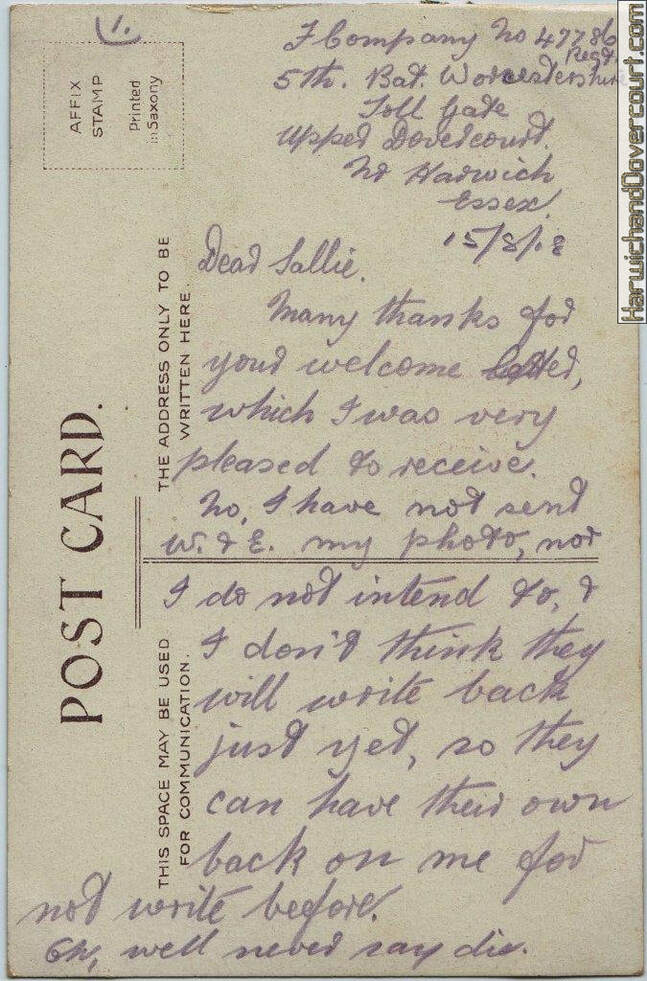 1.
F Company No 47786
5th. Bat. Worcestershire Regt.
Toll Gate
Upper Dovercourt.
Nr Harwich
Essex.
15/8/18
Dear Sallie,
Many thanks for
your welcome letter,
which I was very
pleased to receive.
No, I have not sent
W. & E. my photo, nor
I do not intend to, &
I don't think they
will write back
just yet, so they
can have their own
back on me for
not write before.
Oh, well never say die.
AFFIX
STAMP
Printed
in Saxony
THE ADDRESS ONLY TO BE
WRITTEN HERE.
POST CARD.
THIS SPACE MAY BE USED
FOR COMMUNICATION.
HarwichandDovercourt.com